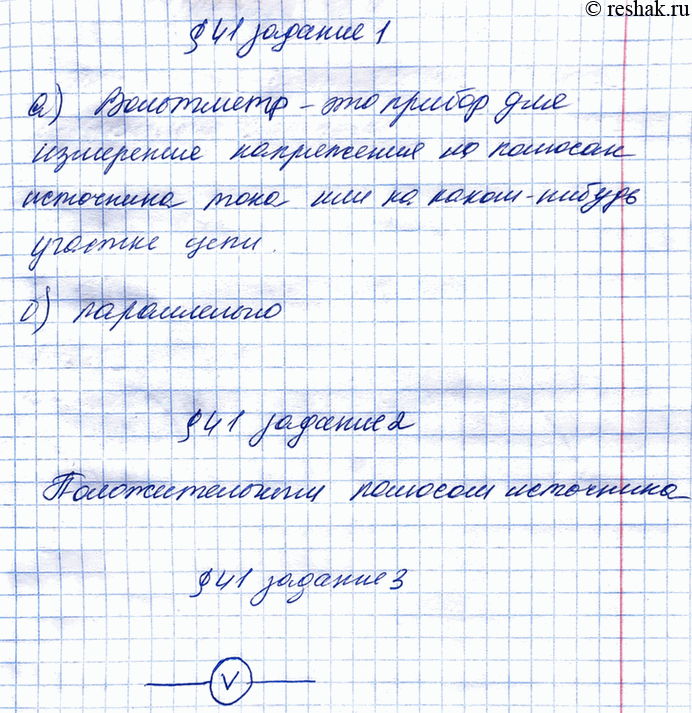 © reshak.ru
§41 задание 1
а) Вольтметр - это прибор для
измерение напряжения на полюсах
источника тока или на каком-нибудь
участке цепи.
б) параллельно
§41 задание 2
Положительным полюсом источника
§41 задание 3
V